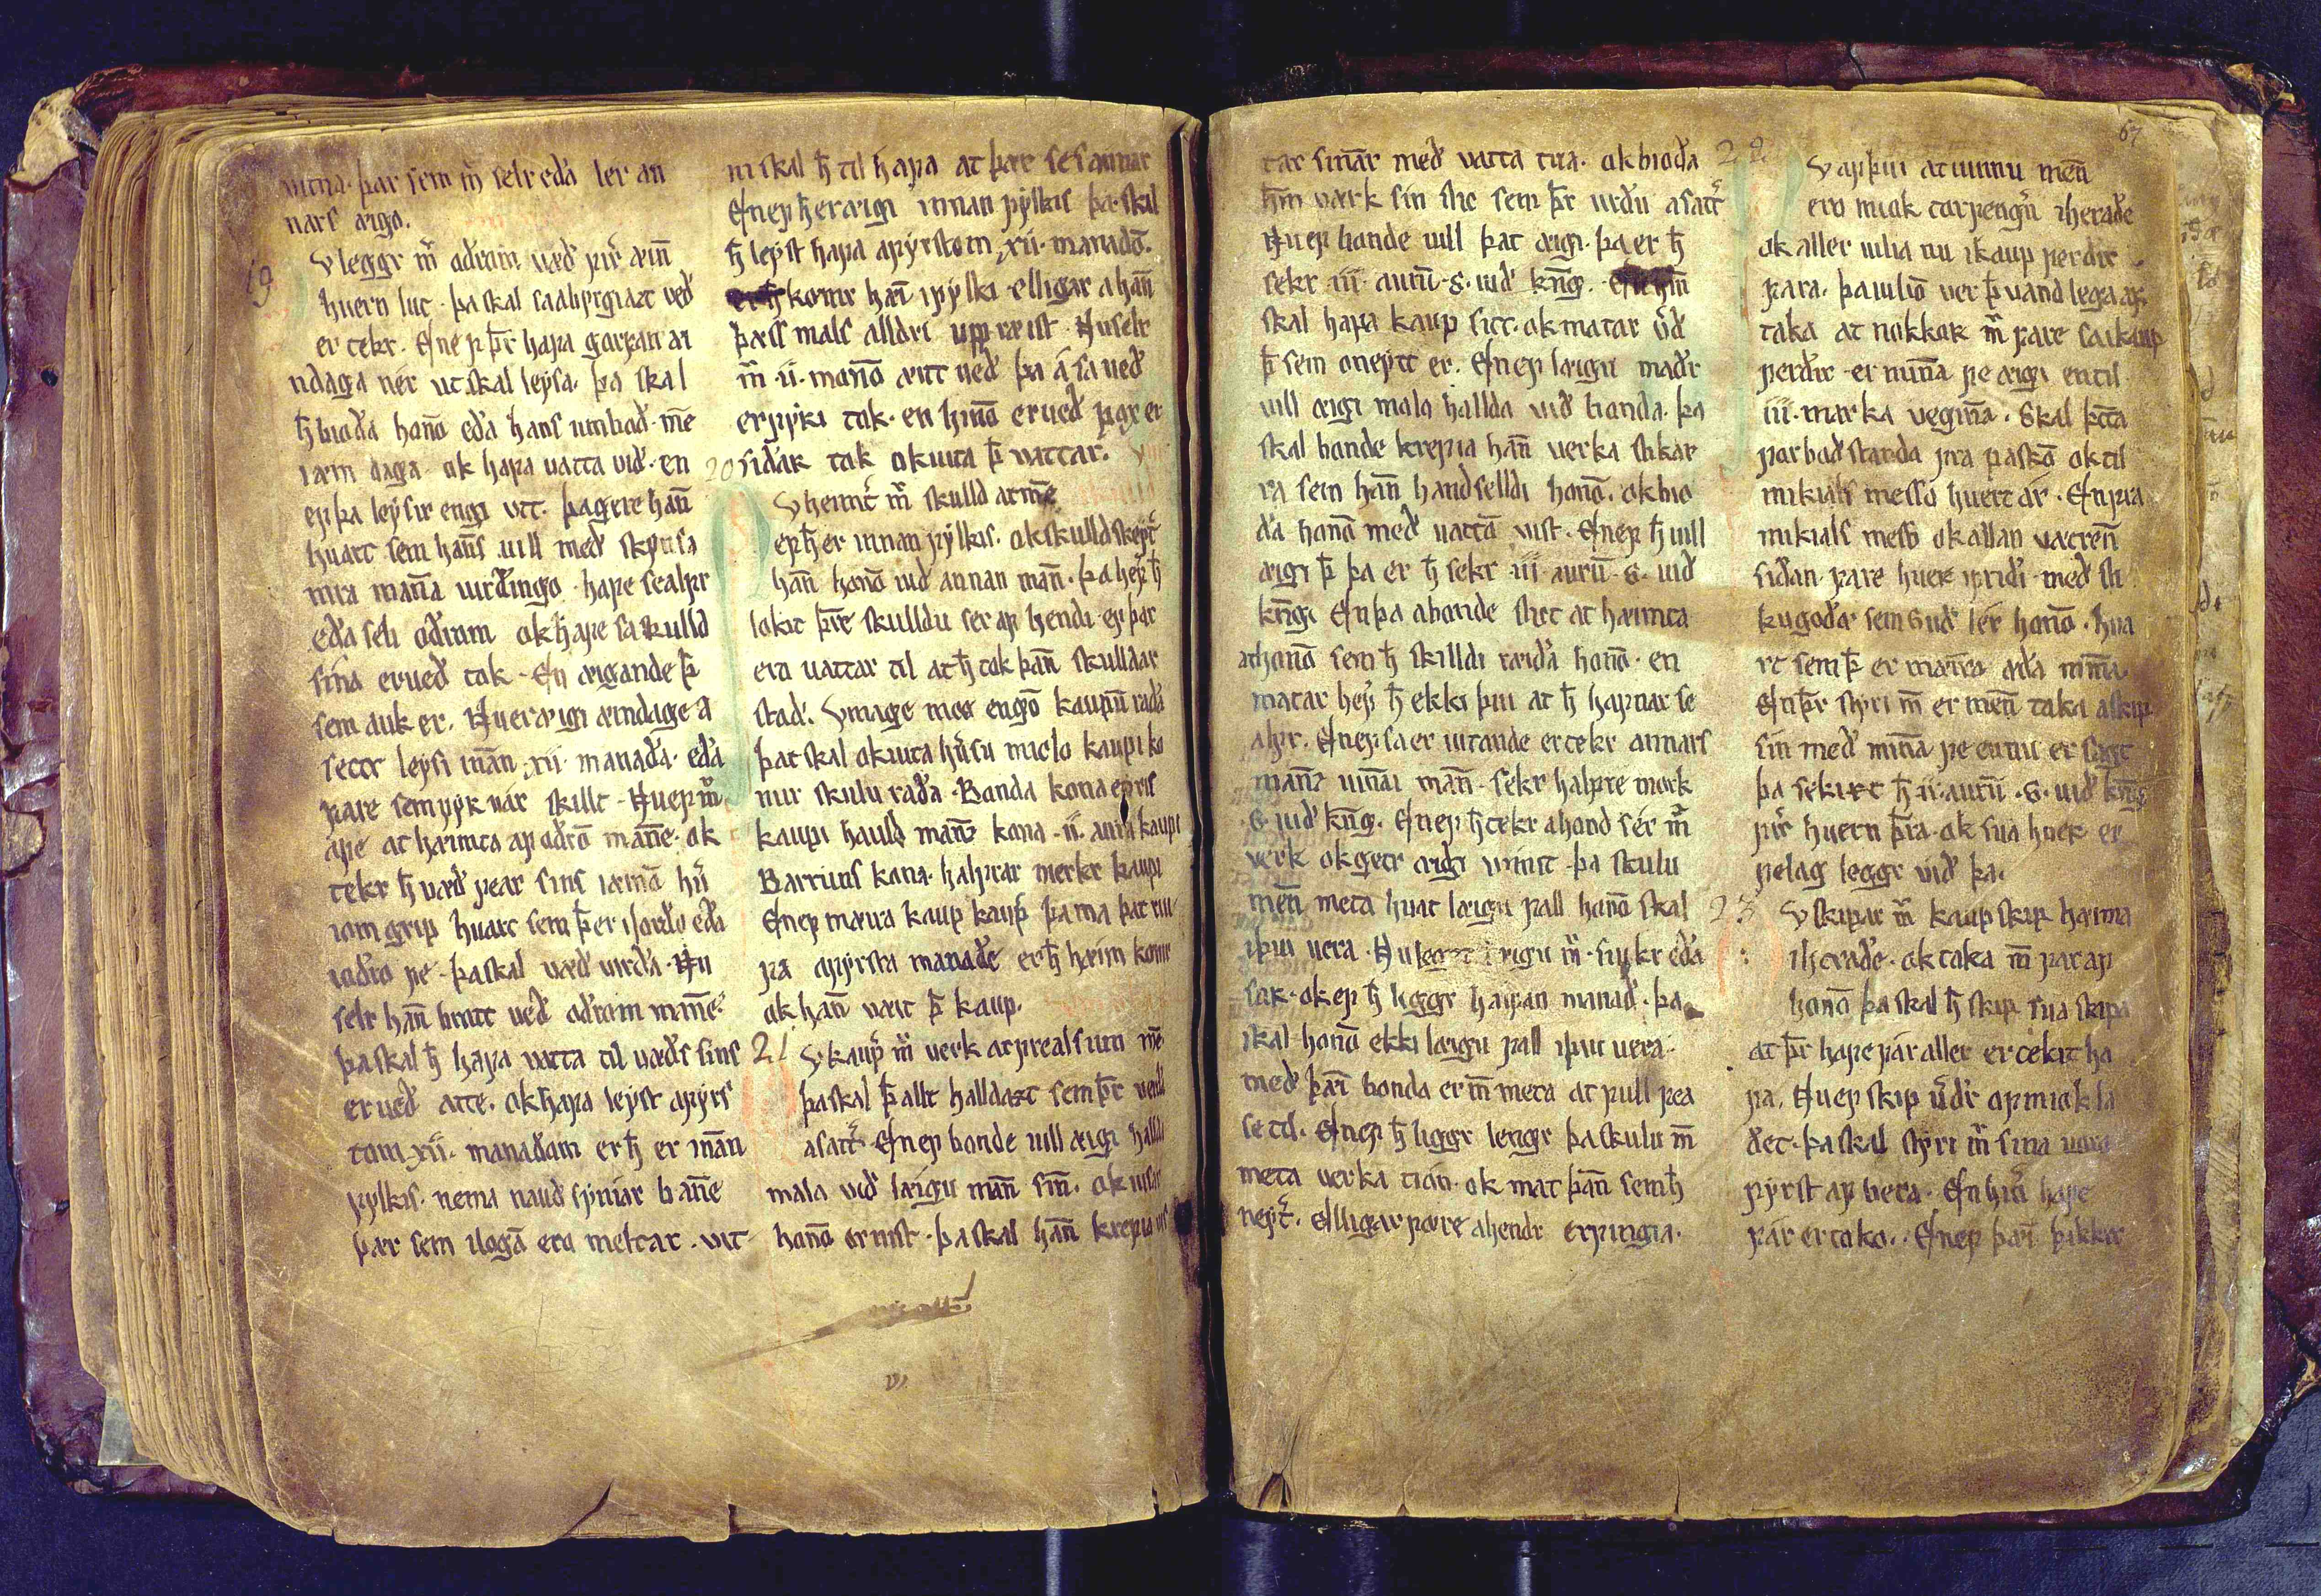 vitna. þar sem m̄ selr eða ler an
nars æigo.
19
Vleggr m̄ oðrom væð firͬ æinn̄
huern lut. þa skal sa abyrgiazt veð
er tekr. En ef þr̄ hafa gorfan æi
ndaga nér ut skal leysa. þa skal
h̄ bioða honō eða hans umboðs m̄e
iæm daga ok hafa vatta við. en
ef þa leysir engi vtt. þa gere hān
huart sem hans̄ uill með skynsa
mra manna uirðingo. hafe sealfr
eða seli oðrum ok hafe sa skulld
sina er ueð tok. En æigande þ̄
sem auk er. Nu er æigi æindage a
settr leysi innān xii. manaða. eða
fare sem fyr var skillt. Nu ef m̄
afe at hæimta af oðrō manne. ok
tekr h̄ væð fear sins iæmā hū
iom grip huart sem þ̄ er i londo eða
i oðro fe. þa skal væð virða. Nu
selr hān bratt ueð oðrum manne.
þa skal h̄ hafa vatta til væðs sins
er ueð atte. ok hafa leyst a fyrs
tom xii. manaðom er h̄ er innān
fylkis. nema nauðsyniar banne
þær sem i logā ero metnar. vit
ni skal h̄ til hafa at þær se sannar
En ef h̄ er æigi innan fylkis þa skal
h̄ leyst hafa a fyrstom xii. manadō.
er h̄ komr hān i fylki elligar a hān
þæss mals alldri uppræist. Nu selr
m̄ ii. monnō æitt ueð þa á sa ueð
er fyrri tok. en hinō er ueð fær er
siðar tok ok uita þ̄ vattar.
20
Vheimtͬ m̄ skulld at m̄e
ef h̄ er innan fylkis. ok skulld skeytͬ
hān honō uið annan mān. þa hefͬ h̄
lokit þr̄e skulldu ser af hendi. ef þar
ero vattar til at h̄ tok þān skulldar
stað. Vmage meg engō kaupū raða
þat skal ok uita hūsu miclo kaupi ko
nur skulu raða. Bonda kona eyris
kaupi haulds mānz kona. ii. aura kaupi
Barruns kona. halfrar merkr kaupi
En ef meira kaup kaupͬ þa ma þat riu
fa a fyrsta manaðe er h̄ hæim komr
ok hān væit þ̄ kaup.
21
Vkaupͬ m̄ verk at frealsum m̄e
þa skal þ̄ allt halldazt sem þr̄ verða
a sattͬ. En ef bonde uill æigi hallda
mala við læigu mān sīn. ok uisar
honō or uist. þa skal hān krefia uis
tar sinnar með vatta tua. ok bioða
h̄m værk sin slic sem þr̄ urðu a sattͬ
Nu ef bonde uill þat æigi. þa er h̄
sekr iii. aurū. s. uið kn̄g. En h̄m
skal hafa kaup sitt. ok matar v̄ð
þ̄ sem oneytt er. En ef læigu maðr
vill æigi mala hallda við bonda. þa
skal bonde krefia hān verka slikar
ra sem hān handselldi honō. ok bio
ða honō með vattō vist. En ef h̄ uill
æigi þ̄ þa er h̄ sekr iii. aurū. s. uið
kn̄g. En þa a bonde slict at hæimta
at honō sem h̄ skilldi ræiða honō. en
matar hefͬ h̄ ekki þui at h̄ hafnar se
alfr. En ef sa er uitande er tekr annars
mānz uinnu mān. sekr halfre mork
s. uið kn̄g. En ef h̄ tekr a hond sér m̄
verk ok getr æigi vnnit. þa skulu
menn meta huat læigu fall honō skal
i þui vera. Nu leggzt læigu m̄. siukr eða
sar. ok ef h̄ liggr halfan manað. þa
skal honō ekki læigu fall i þui uera.
með þæi bonda er m̄ meta at full fea
se til. En ef h̄ liggr lengr þa skulu m̄
meta verka tion. ok mat þān sem h̄
neytͬ. elligar fære a hendr erfingia.
67
22
V af þui at uinnu menn
ero miok torfengͬ i heraðe
ok aller uilia nu i kaup ferdir
fara. þa uiliō ver þ̄ vandlega af
taka at nokkor m̄ fare sa i kaup
ferdir er minna fe æigi en til
iii. marka vegīna. Skal þtta
forboð standa fra paskō ok til
mikials messo huert ár. En fra
mikials messo ok allan vætren
siðan fare huer i friði með sli
ku goðz sem Guð lér honō. hua
rt sem þ̄ er mæira æða minna.
En þr̄ styri m̄ er menn taka a skip
sin með minna fe en nu er sagt
þa sekizt h̄ iii. aurū. s. uið kn̄g
firͬ huern þr̄a. ok sua huer er
felag leggr við þa.
23
Vskipar m̄ kaupskip hæima
i heraðe. ok taka m̄ far af
honō þa skal h̄ skip sua skipa
at þr̄ hafe fár aller er tekit ha
fa. Nu ef skip v̄ðr of mick la
ðet. þa skal styri m̄ sina uoro
fyrst af bera. En hinͬ hafe
fár er toko. En ef þæi þikkir